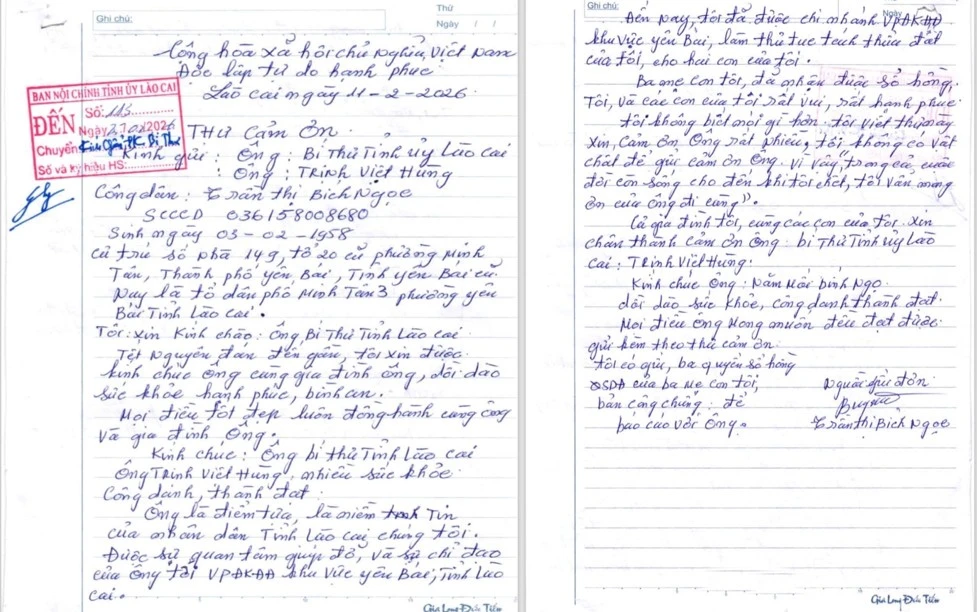 Ghi chú:
Thứ
Ngày / /
Cộng hòa xã hội chủ nghĩa, Việt Nam
Độc lập tự do hạnh phúc
Lào cai ngày 11-2-2026
BAN NỘI CHÍNH TỈNH ỦY LÀO CAI
ĐẾN
Số: 113
Ngày
Chuyển:
Số và ký hiệu HS:
THƯ CẢM ƠN
Kính gửi: Ông: Bí Thư Tỉnh ủy Lào cai
: Ông: TRịnh Việt Hùng
Công dân: Trần thị Bích Ngọc
SCCCD 036158008680
Sinh ngày 03-02-1958
Cư trú số nhà 149, tổ 20 cũ phường minh
Tân, Thành phố yên Bái, Tỉnh yên Bái cũ.
Nay là tổ dân phố Minh Tân 3 phường yên
Bái Tỉnh Lào cai.
Tôi: xin Kính chào: Ông, Bí Thư Tỉnh Lào cai
Tết Nguyên đán đến gần, tôi xin được
kính chúc ông cùng gia đình ông, dồi dào
sức khỏe hạnh phúc, bình an.
Mọi điều tốt đẹp luôn đồng hành cùng ông
và gia đình Ông.
Kính chúc: Ông bí thư Tỉnh Lào cai
Ông TRịnh Việt Hùng, nhiều sức khỏe
Công danh, thành đạt.
Ông là điểm tựa, là niềm Tin
của nhân dân Tỉnh Lào cai, chúng tôi.
Được sự quan tâm giúp đỡ, và sự chỉ đạo
của ông tới VPĐKĐĐ khu Vực yên Bái, Tỉnh Lào
cai.
Gia Long Đức Tiến
Ghi chú:
Ngày
Đến Nay, tôi đã được chi nhánh VPĐKĐĐ
khu vực yên Bái, làm thủ tục tách thửa đất
của tôi, cho hai con của tôi.
Ba mẹ con tôi, đã nhận được sổ hồng.
Tôi, và các con của tôi rất vui, rất hạnh phúc
tôi không biết nói gì hơn. tôi viết thư này
xin, cảm ơn Ông rất nhiều, tôi không có vật
chất để gửi cảm ơn Ông. Vì vậy, trong cả cuộc
đời còn sống cho đến khi tôi chết, tôi vẫn mang
ơn của ông đi cùng".
Cả gia đình tôi, cùng các con của tôi. xin
chân thành cảm ơn Ông: bí Thư Tỉnh ủy Lào
Cai: TRịnh Việt Hùng.
Kính chúc Ông: Năm Mới bính Ngọ
dồi dào sức khỏe, công danh thành đạt.
Mọi điều ông Mong muốn đều đạt được
gửi kèm theo thư cảm ơn.
tôi có gửi, ba quyển sổ hồng
QSDĐ của ba Mẹ con tôi,
bản công chứng: để
báo cáo với Ông.
Người gửi đơn
Trần thị Bích Ngọc
Gia Long Đức Tiến